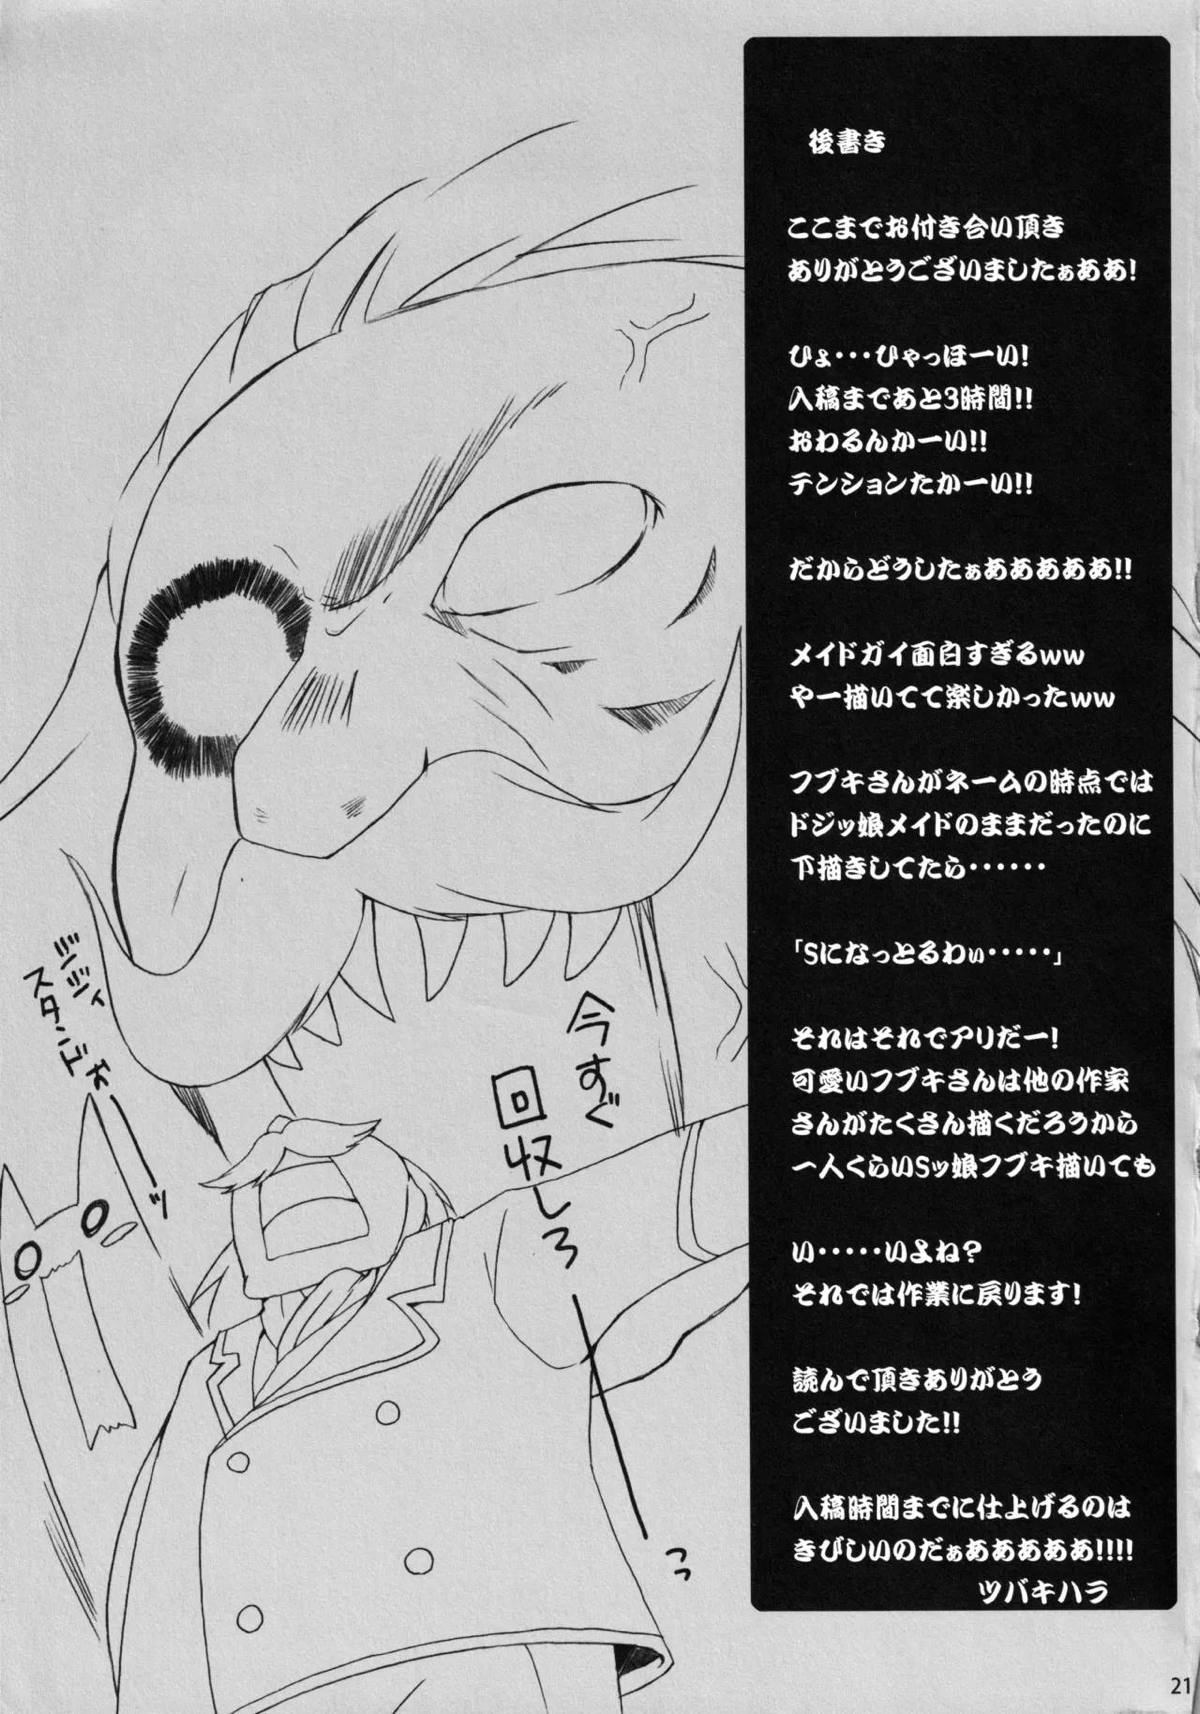 後書き
ここまでお付き合い頂き
ありがとうございましたぁああ!
ひょ・・・ひゃっほーい!
入稿まであと3時間!!
おわるんかーい!!
テンションたかーい!!
だからどうしたぁあああああ!!
メイドガイ面白すぎるww
やー描いてて楽しかったww
フブキさんがネームの時点では
ドジッ娘メイドのままだったのに
下描きしてたら・・・・・・
「Sになっとるわぃ・・・・・」
それはそれでアリだー!
可愛いフブキさんは他の作家
さんがたくさん描くだろうから
一人くらいSッ娘フブキ描いても
い・・・・・いよね?
それでは作業に戻ります!
読んで頂きありがとう
ございました!!
入稿時間までに仕上げるのは
きびしいのだぁあああああ!!!!
ツバキハラ
今すぐ
回収しろ
ーーっっ
21